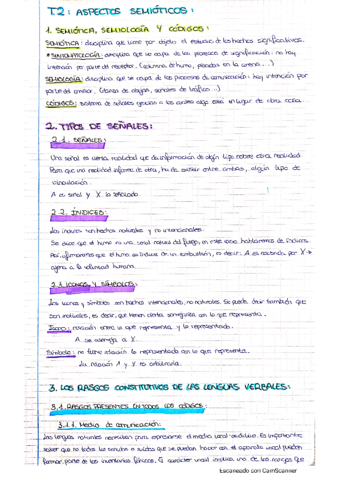 T2: ASPECTOS SEMIÓTICOS:
1. SEMIÓTICA, SEMIOLOGÍA Y CÓDIGOS:
SEMIÓTICA: disciplina que tiene por objeto el estudio de los hechos significativos.
disciplina que se ocupa de los procesos de significación: no hay
intención por parte del receptor. (columna de humo, pisadas en la arena...)
SEMIOLOGÍA: disciplina que se ocupa de los procesos de comunicación: hay intención por
parte del emisor. (lazos de objetos, señales de tráfico...)
CÓDIGOS: sistema de señales gracias a las cuales algo está en lugar de otra cosa.
2. TIPOS DE SEÑALES:
2.1. SEÑALES:
Una señal es una realidad que da información de algún tipo sobre otra realidad.
Para que una realidad informe de otra, ha de existir entre ambas, algún tipo de
vinculación.
A es señal y X lo señalado.
2.2. INDICES:
Los índices son hechos naturales y no intencionales.
Se dice que el humo es una señal natural del fuego, en este caso hablaremos de índices.
Así, afirmaremos que el humo es índice de una combustión, es decir: A es causada por X →
ajena a la voluntad humana.
ICONOS Y SÍMBOLOS:
Los iconos y símbolos son hechos intencionales, no naturales. Se puede decir también que
son motivados, es decir, que tienen cierta semejanza con lo que representa.
Icono: relación entre lo que representa y lo representado.
A se asemeja a X.
Símbolo: no tiene relación lo representado con lo que representa.
La relación A y X es arbitraria.
3. LOS RASGOS CONSTITUTIVOS DE LAS LENGUAS VERBALES:
3.1. RASGOS PRESENTES EN TODOS LOS CÓDIGOS:
3.1.1. Medio de comunicación:
Las lenguas naturales necesitan para expresarse el medio vocal-auditivo. Es importante
saber que no todos los sonidos o ruidos que se puedan hacer con el aparato vocal pueden
formar parte de los inventarios fónicos. El carácter vocal implica uno de los rasgos que
Escaneado con CamScanner